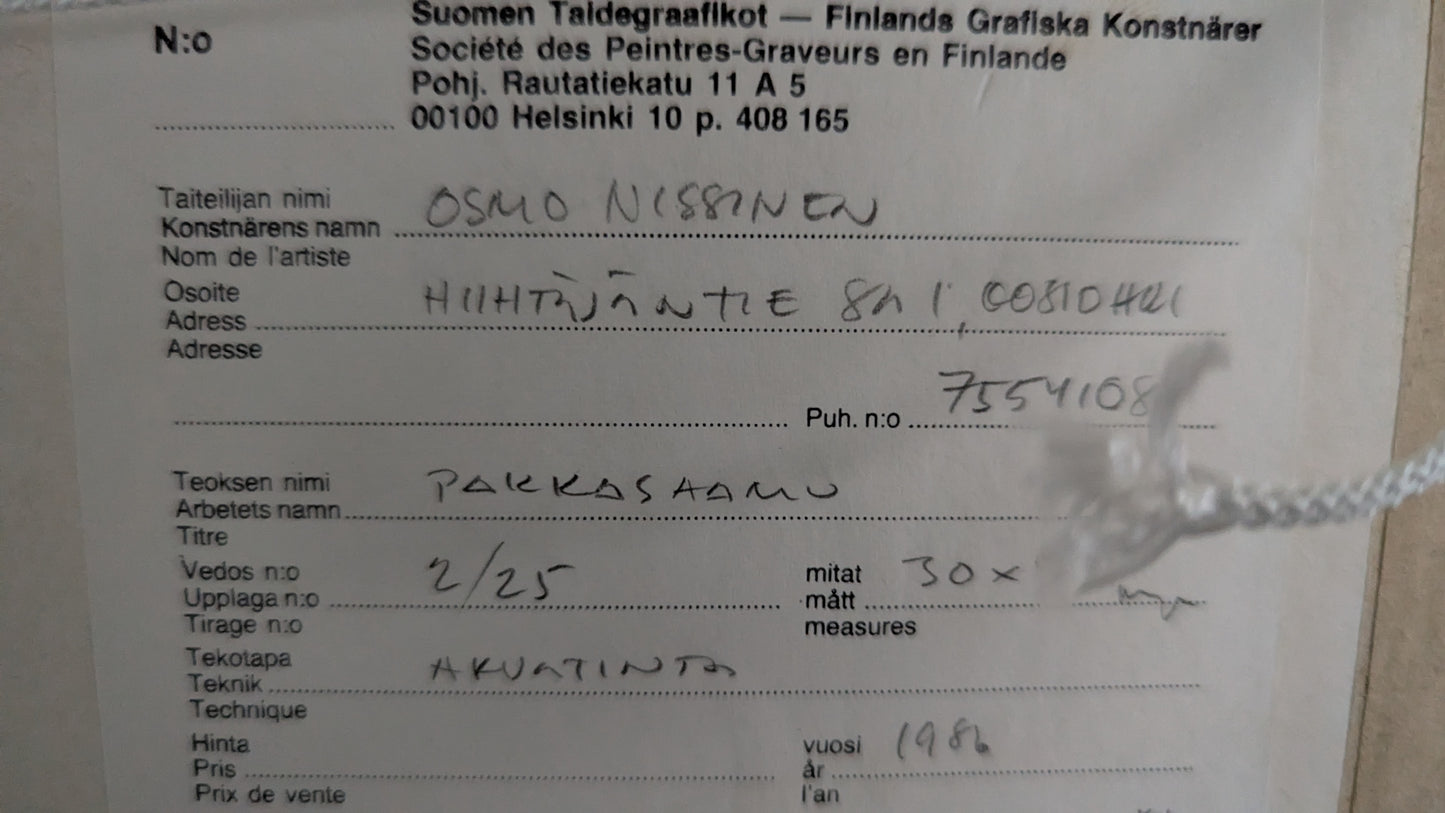 N:o
Suomen Taidegraafikot — Finlands Grafiska Konstnärer
Société des Peintres-Graveurs en Finlande
Pohj. Rautatiekatu 11 A 5
00100 Helsinki 10 p. 408 165
Taiteilijan nimi OSMO NISSINEN
Konstnärens namn
Nom de l'artiste
Osoite HIIHTÄJÄNTIE 8A 1, 00810 HKI
Adress
Adresse
Puh. n:o 7554108
Teoksen nimi PAKKASAAMU
Arbetets namn
Titre
Vedos n:o 2/25 mitat 30 x
Upplaga n:o mått
Tirage n:o measures
Tekotapa AKVATINTA
Teknik
Technique
Hinta vuosi 1986
Pris år
Prix de vente l'an